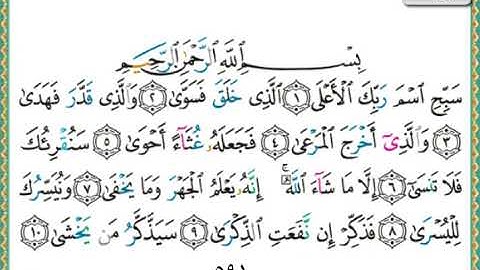 بِسْمِ ٱللَّهِ ٱلرَّحْمَٰنِ ٱلرَّحِيمِ
سَبِّحِ ٱسْمَ رَبِّكَ ٱلْأَعْلَى ١ ٱلَّذِى خَلَقَ فَسَوَّىٰ ٢ وَٱلَّذِى قَدَّرَ فَهَدَىٰ
٣ وَٱلَّذِىٓ أَخْرَجَ ٱلْمَرْعَىٰ ٤ فَجَعَلَهُۥ غُثَآءً أَحْوَىٰ ٥ سَنُقْرِئُكَ
فَلَا تَنسَىٰٓ ٦ إِلَّا مَا شَآءَ ٱللَّهُ ۚ إِنَّهُۥ يَعْلَمُ ٱلْجَهْرَ وَمَا يَخْفَىٰ ٧ وَنُيَسِّرُكَ
لِلْيُسْرَىٰ ٨ فَذَكِّرْ إِن نَّفَعَتِ ٱلذِّكْرَىٰ ٩ سَيَذَّكَّرُ مَن يَخْشَىٰ ١٠
٥٩١